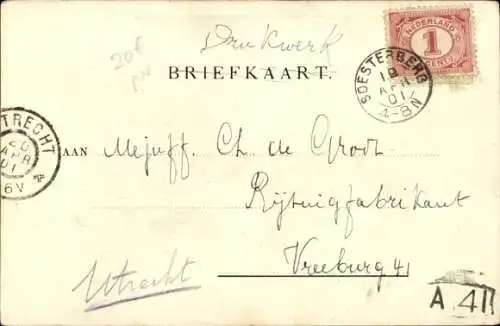 20€
Drukwerk
NEDERLAND
1
CENT
BRIEFKAART.
SOESTERBERG
19
APR
01
4-8N
UTRECHT
20
APR
01
6V
AAN Mejuff. Ch. de Groot
Rijtuigfabrikant
Vreeburg 41
Utrecht
A 41